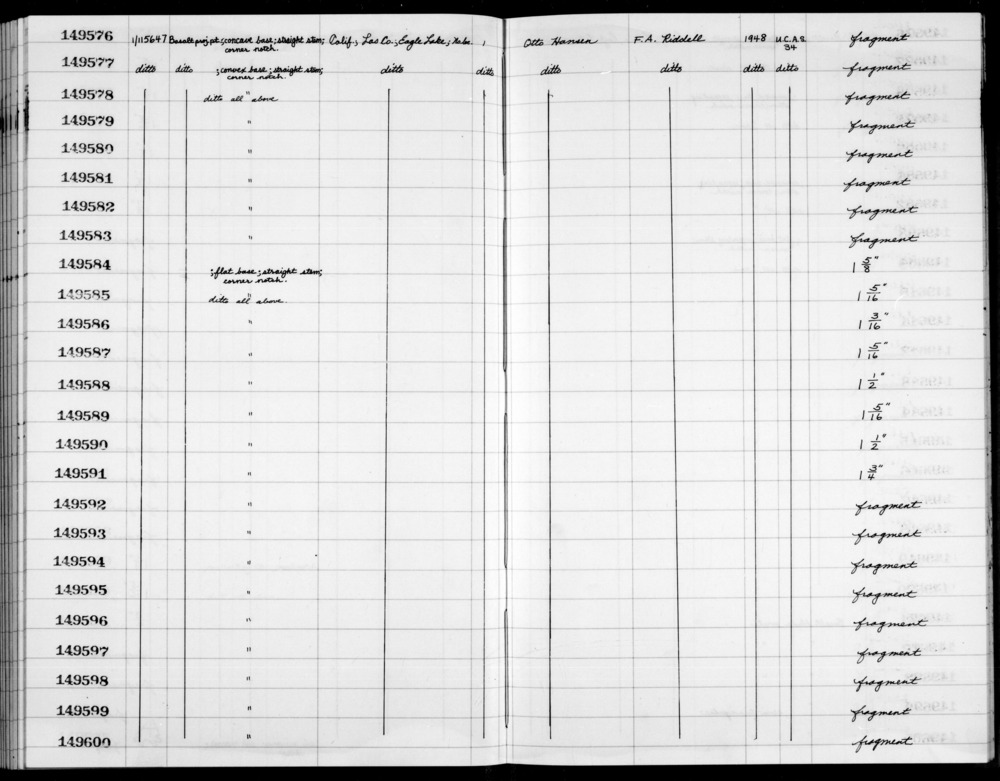 149576 1/115647 Basalt proj pt.; concave base; straight stem; Calif., Las Co., Eagle Lake, 1 Otto Hansen F.A. Riddell 1948 U.C.A.S. fragment
corner notch. 34
149577 ditto ditto ; convex base; straight stem; ditto ditto ditto ditto ditto ditto fragment
corner notch.
149578 ditto all " above fragment
149579 " fragment
149580 " fragment
149581 " fragment
149582 " fragment
149583 " fragment
149584 ; flat base; straight stem; 1 5/8"
corner notch.
149585 ditto all " above. 1 5/16"
149586 " 1 3/16"
149587 " 1 5/16"
149588 " 1 1/2"
149589 " 1 5/16"
149590 " 1 1/2"
149591 " 1 3/4"
149592 " fragment
149593 " fragment
149594 " fragment
149595 " fragment
149596 " fragment
149597 " fragment
149598 " fragment
149599 " fragment
149600 " fragment